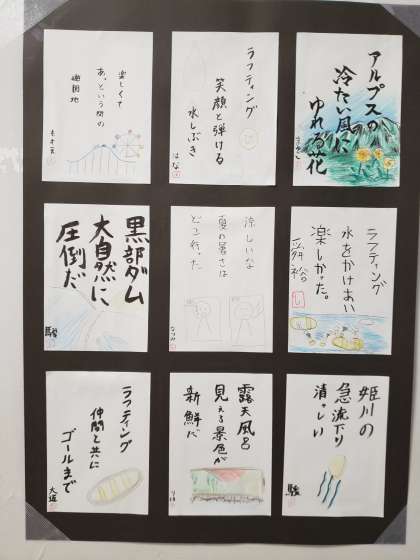 アルプスの
冷たい風に
ゆれる花
ラフティング
笑顔と弾ける
水しぶき
はな
楽しくて
あっという間の
遊園地
ラフティング
水をかけあい
楽しかった。
涼しいな
夏の暑さは
どこ行った
なつみ
黒部ダム
大自然に
圧倒だ
駿
姫川の
急流下り
清々しい
駿
露天風呂
見える景色が
新鮮だ
ラフティング
仲間と共に
ゴールまで
大遥